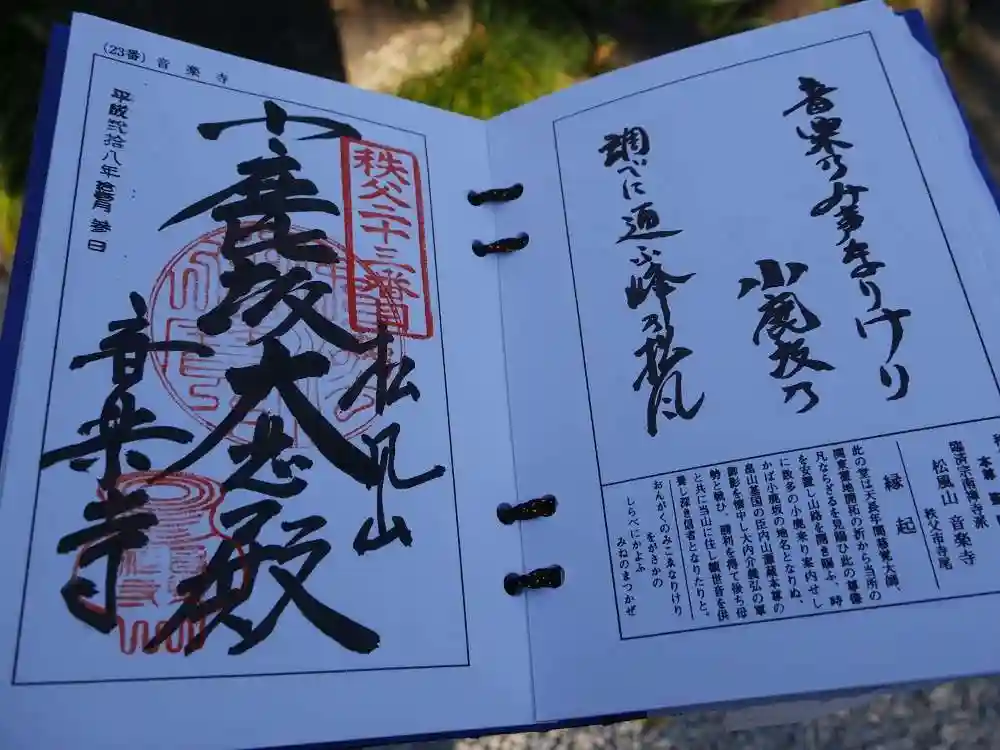 (23番) 音楽寺
平成弐拾八年拾弐月参日
小鹿坂大悲殿
秩父二十三番
松風山
音楽寺
音楽のみ声なりけり
小鹿坂の
調べに通ふ峰の松風
臨済宗南禅寺派
松風山 音楽寺
秩父市寺尾
縁起
此の堂は天長年間慈覚大師、
関東霊地開拓の折から当所の
凡ならざるを見賜ひ此の尊像
を安置し山路を開き賜ふ、時
に数多の小鹿来り案内せし
かば小鹿坂の地名となりぬ、
畠山基国の臣内山遠蔵本尊の
御影を懐中し大内介義弘の軍
勢と戦ひ、勝利を得て後ち母
と共に当山に住し観世音を供
養し深き信者となりたりと。
おんがくのみこゑなりけり
をがさかの
しらべにかよふ
みねのまつかぜ